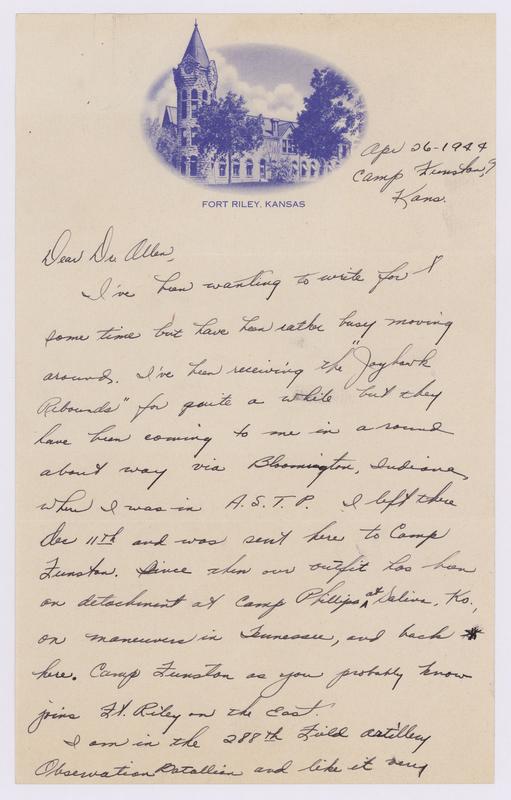 FORT RILEY, KANSAS
Apr 26-1944
Camp Funston,
Kans.
Dear Dr. Allen,
I've been wanting to write for
some time but have been rather busy moving
around. I've been receiving the "Jayhawk
Rebounds" for quite a while but they
have been coming to me in a round
about way via Bloomington, Indiana,
where I was in A.S.T.P. I left there
Dec 11th and was sent here to Camp
Funston. Since then our outfit has been
on detachment at Camp Phillips at Salina, Ks.,
on maneuvers in Tennessee, and back
here. Camp Funston as you probably know
joins Ft. Riley on the East.
I am in the 288th Field Artillery
Observation Batallion and like it very